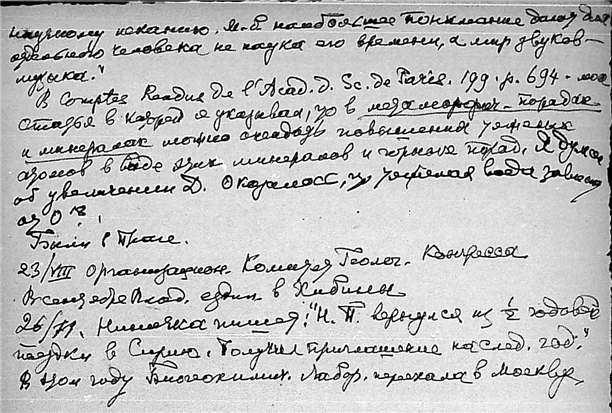 научному исканию. М.б. наибольшее понимание бытия для
отдельного человека не наука его времени, а мир звуков -
музыка."
В Comptes Rendus de l'Acad. d. Sc. de Paris. 199. p. 694 - моя
статья в которой я указывал, что в метаморфич. породах
и минералах можно ожидать повышения тяжелых
атомов в виде этих минералов и горных пород. Я думал
об увеличении D. Оказалось, что тяжелая вода зависит
от O
Были в Праге.
23/VIII Организацион. Комитет Геолог. Конгресса
В сентябре Влад. ездил в Хибины
26/ Ниночка пишет: "Н. П. вернулся из ½ годовой
поездки в Сирию. Получил приглашение на след. год."
В этом году Биогеохимич. Лабор. переехала в Москву